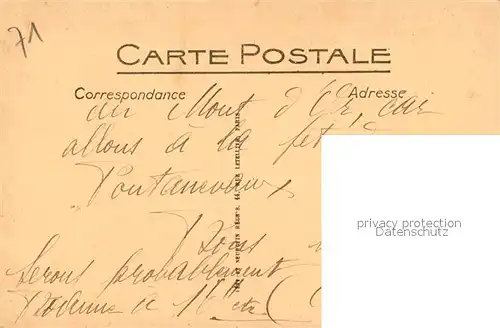 71
CARTE POSTALE
Correspondance
Adresse
au Mont d'Or, car
allons à la fet
Pontanevaux
Nous
serons probablement
à 16
privacy protection
Datenschutz